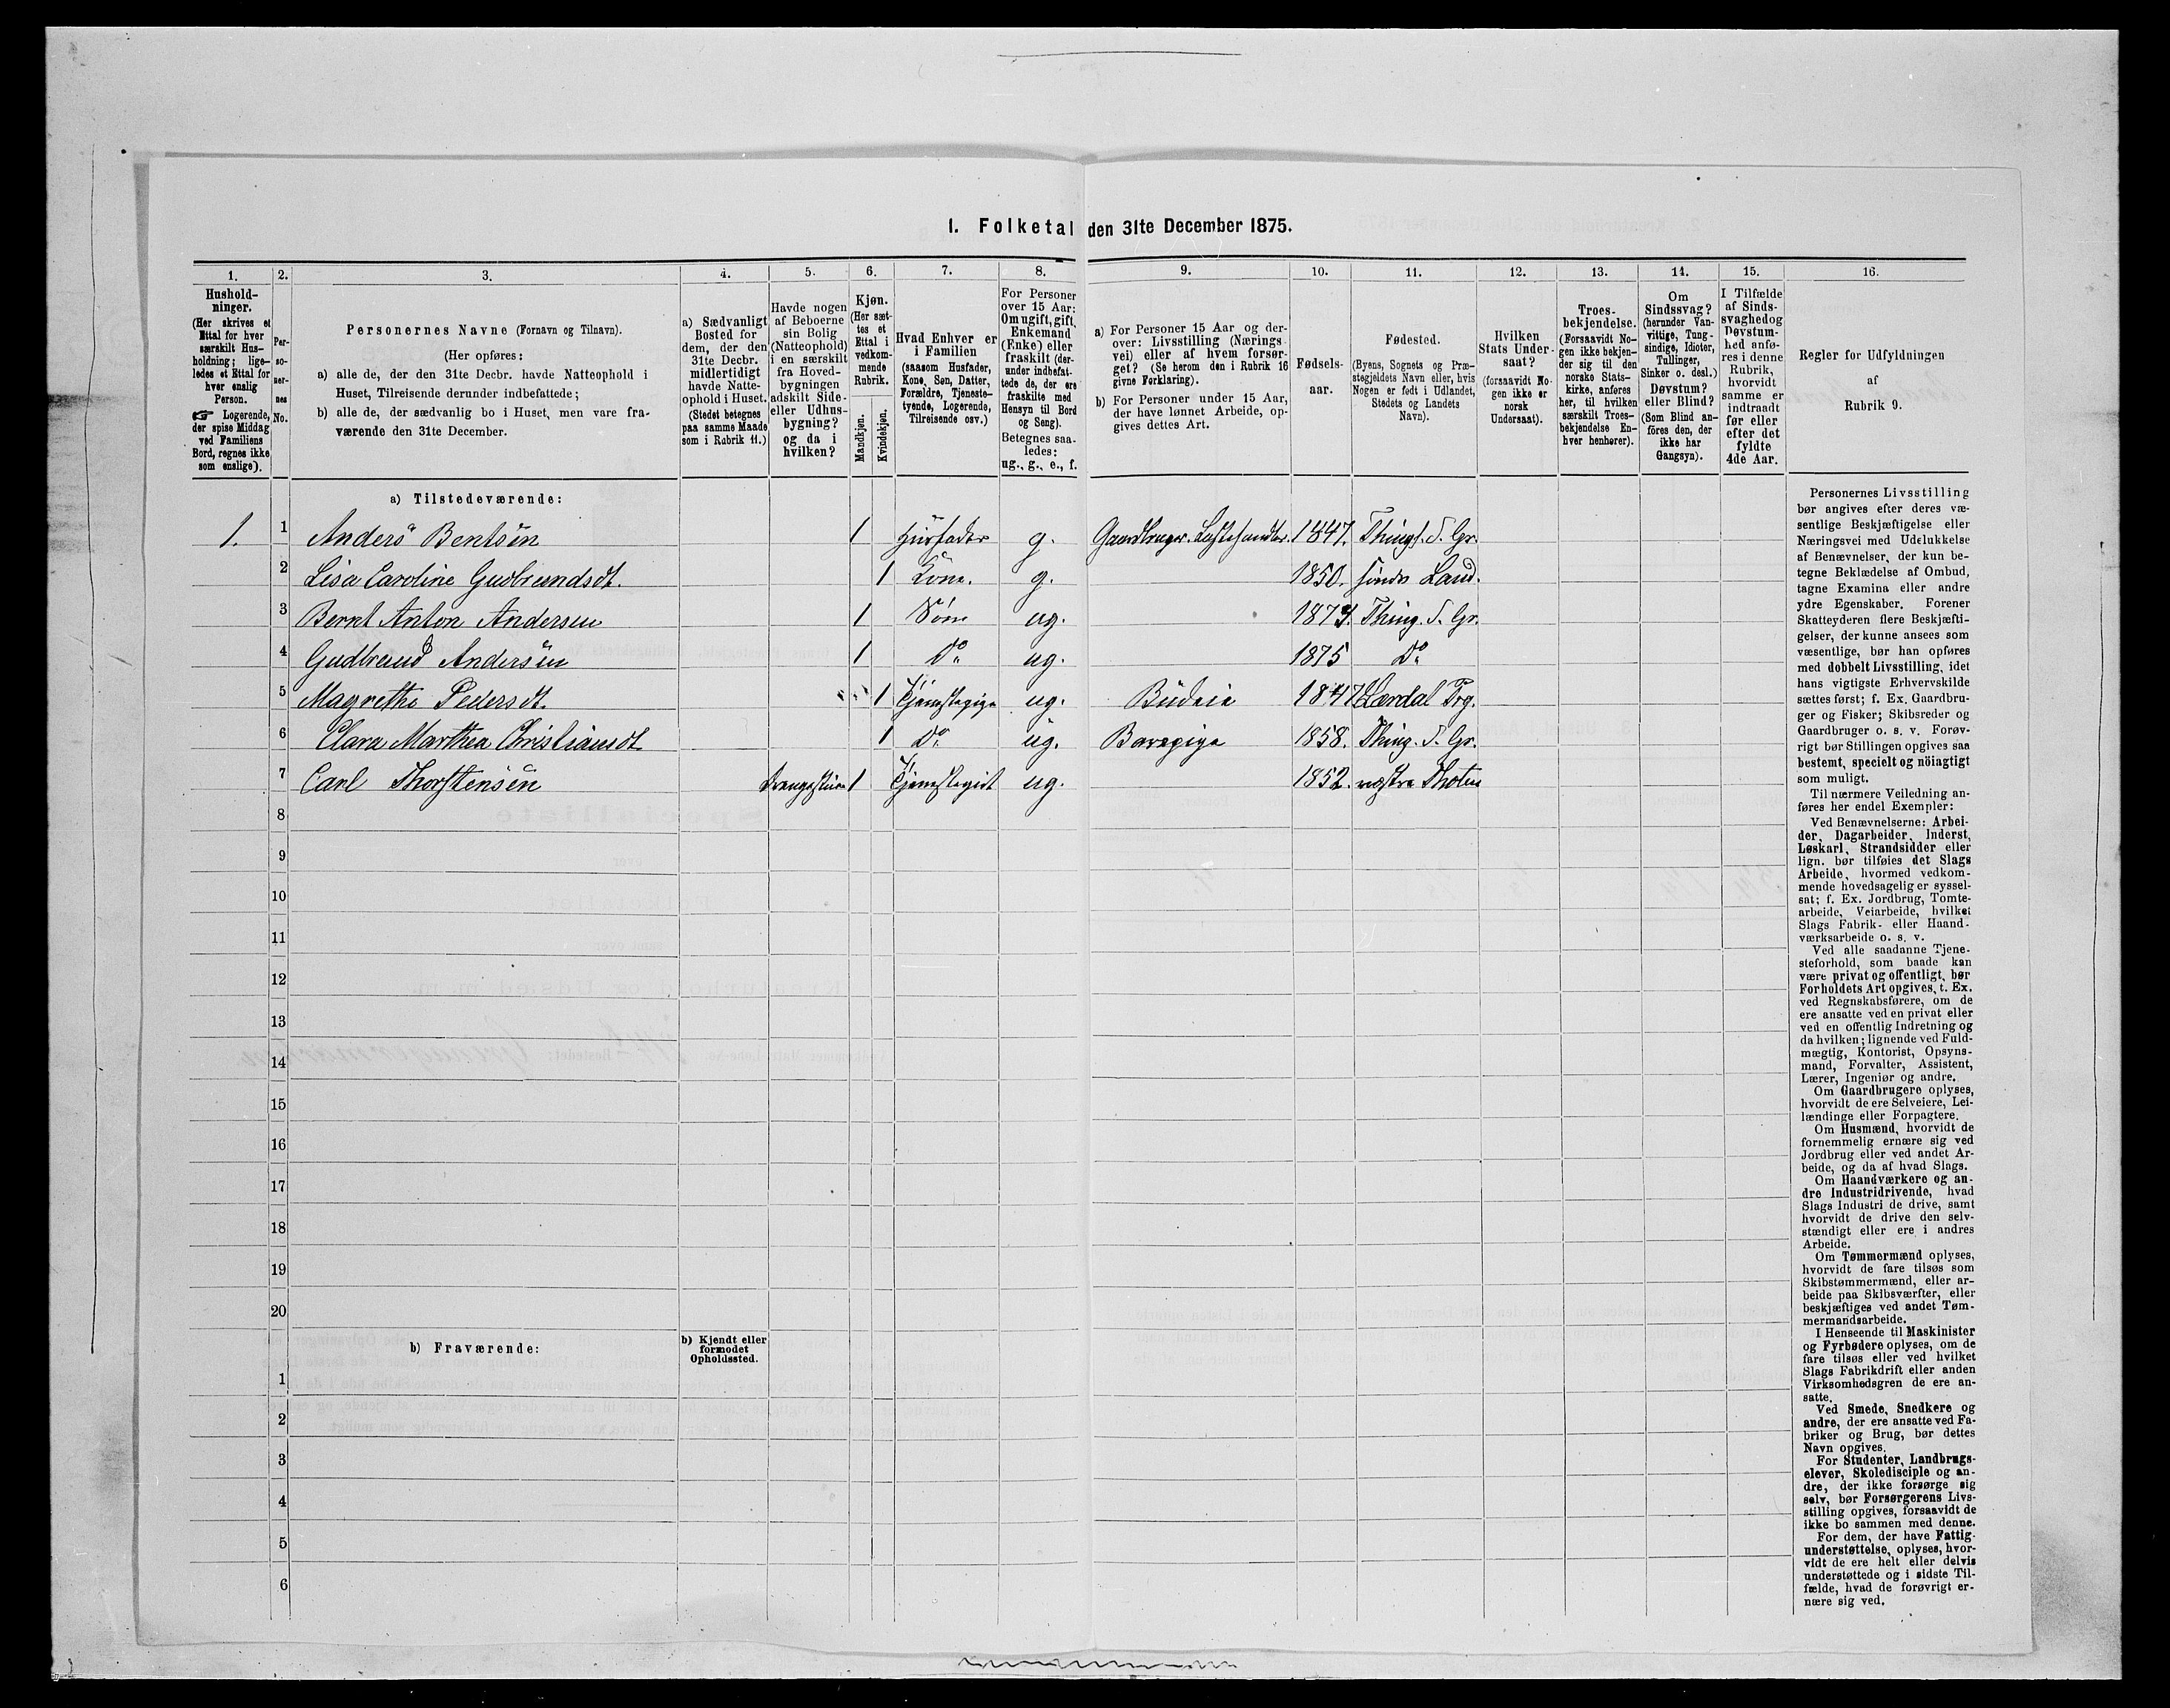 1. Folketal den 31te December 1875.
1. 2. 3. 4. 5. 6. 7. 8. 9. 10. 11. 12. 13. 14. 15. 16.
Hushold-
ninger.
(Her skrives et
Ettal for hver
særskilt Hus-
holdning; lige-
ledes et Ettal for
hver enslig
Person.
☞ Logerende,
der spise Middag
ved Familiens
Bord, regnes ikke
som enslige).
Per-
so-
ner-
nes
No.
Personernes Navne (Fornavn og Tilnavn).
(Her opføres:
a) alle de, der den 31te Decbr. havde Natteophold i
Huset, Tilreisende derunder indbefattede;
b) alle de, der sædvanlig bo i Huset, men vare fra-
værende den 31te December.
a) Sædvanligt
Bosted for
dem, der den
31te Decbr.
midlertidigt
havde Natte-
ophold i Huset.
(Stedet betegnes
paa samme Maade
som i Rubrik 11.)
Havde nogen
af Beboerne
sin Bolig
(Natteophold)
i en særskilt
fra Hoved-
bygningen
adskilt Side-
eller Udhus-
bygning?
og da i
hvilken?
Kjøn.
(Her sæt-
tes et
Ettal i
vedkom-
mende
Rubrik.
Mandkjøn.
Kvindekjøn.
Hvad Enhver er
i Familien
(saasom Husfader,
Kone, Søn, Datter,
Forældre, Tjeneste-
tyende, Logerende,
Tilreisende osv.)
For Personer
over 15 Aar:
Om ugift, gift,
Enkemand
(Enke) eller
fraskilt (der-
under indbefat-
tede de, der ere
fraskilte med
Hensyn til Bord
og Seng).
Betegnes saa-
ledes:
ug., g., e., f.
a) For Personer 15 Aar og der-
over: Livsstilling (Nærings-
vei) eller af hvem forsør-
get? (Se herom den i Rubrik 16
givne Forklaring).
b) For Personer under 15 Aar,
der have lønnet Arbeide, op-
gives dettes Art.
Fødsels-
aar.
Fødested.
(Byens, Sognets og Præ-
stegjeldets Navn eller, hvis
Nogen er født i Udlandet,
Stedets og Landets
Navn).
Hvilken
Stats Under-
saat?
(forsaavidt No-
gen ikke er
norsk
Undersaat).
Troes-
bekjendelse.
(Forsaavidt No-
gen ikke bekjen-
der sig til den
norske Stats-
kirke, anføres
her, til hvilken
særskilt Troes-
bekjendelse En-
hver henhører).
Om
Sindssvag?
(herunder Van-
vittige, Tung-
sindige, Idioter,
Tullinger,
Sinker o. desl.)
Døvstum?
eller Blind?
(Som Blind an-
føres den, der
ikke har
Gangsyn).
I Tilfælde
af Sinds-
svaghed og
Døvstum-
hed anfø-
res i denne
Rubrik,
hvorvidt
samme er
indtraadt
før eller
efter det
fyldte
4de Aar.
Regler for Udfyldningen
af
Rubrik 9.
a) Tilstedeværende:
1. 1 Anders Bentsen 1 Husfader g. Gaardbruger. 1847. Things. S. Gr.
2 Lisa Caroline Gudbrandsdt. 1 Kone. g. 1850. søndr Land.
3 Bernt Anton Andersen 1 Søn ug. 1874. Thing. S. Gr.
4 Gudbrand Andersen 1 Do ug. 1875 Do
5 Magrethe Pedersdt. 1 Tjenestepige ug. Budeie 1847 Lærdal Prg.
6 Clara Marthea Christiansdt. 1 Do ug. Barnepige 1858. Thing. S. Gr.
7 Carl Thorstensen Drengestuen 1 Tjenestegut ug. 1852. vestre Thoten
8
9
10
11
12
13
14
15
16
17
18
19
20
b) Fraværende:
b) Kjendt eller
formodet
Opholdssted.
1
2
3
4
5
6
Personernes Livsstilling
bør angives efter deres væ-
sentlige Beskjæftigelse eller
Næringsvei med Udelukkelse
af Benævnelser, der kun be-
tegne Beklædelse af Ombud,
tagne Examina eller andre
ydre Egenskaber. Forener
Skatteyderen flere Beskjæfti-
gelser, der kunne ansees som
væsentlige, bør han opføres
med dobbelt Livsstilling, idet
hans vigtigste Erhvervskilde
sættes først; f. Ex. Gaardbru-
ger og Fisker; Skibsreder og
Gaardbruger o. s. v. Forøv-
rigt bør Stillingen opgives saa
bestemt, specielt og nöiagtigt
som muligt.
Til nærmere Veiledning an-
føres her endel Exempler:
Ved Benævnelserne: Arbei-
der, Dagarbeider, Inderst,
Løskarl, Strandsidder eller
lign. bør tilføies det Slags
Arbeide, hvormed vedkom-
mende hovedsagelig er syssel-
sat; f. Ex. Jordbrug, Tomte-
arbeide, Veiarbeide, hvilket
Slags Fabrik- eller Haand-
værksarbeide o. s. v.
Ved alle saadanne Tjene-
steforhold, som baade kan
være privat og offentligt, bør
Forholdets Art opgives, t. Ex.
ved Regnskabsførere, om de
ere ansatte ved en privat eller
ved en offentlig Indretning og
da hvilken; lignende ved Fuld-
mægtig, Kontorist, Opsyns-
mand, Forvalter, Assistent,
Lærer, Ingeniør og andre.
Om Gaardbrugere oplyses,
hvorvidt de ere Selveiere, Lei-
lændinge eller Forpagtere.
Om Husmænd, hvorvidt de
fornemmelig ernære sig ved
Jordbrug eller ved andet Ar-
beide, og da af hvad Slags.
Om Haandværkere og an-
dre Industridrivende, hvad
Slags Industri de drive, samt
hvorvidt de drive den selv-
stændigt eller ere i andres
Arbeide.
Om Tømmermænd oplyses,
hvorvidt de fare tilsøs som
Skibstømmermænd, eller ar-
beide paa Skibsværfter, eller
beskjæftiges ved andet Tøm-
mermandsarbeide.
I Henseende til Maskinister
og Fyrbødere oplyses, om de
fare tilsøs eller ved hvilket
Slags Fabrikdrift eller anden
Virksomhedsgren de ere an-
satte.
Ved Smede, Snedkere og
andre, der ere ansatte ved Fa-
briker og Brug, bør dettes
Navn opgives.
For Studenter, Landbrugs-
elever, Skoledisciple og an-
dre, der ikke forsørge sig
selv, bør Forsørgerens Livs-
stilling opgives, forsaavidt de
ikke bo sammen med denne.
For dem, der have Fattig-
understøttelse, oplyses, hvor-
vidt de ere helt eller delvis
understøttede og i sidste Til-
fælde, hvad de forøvrigt er-
nære sig ved.